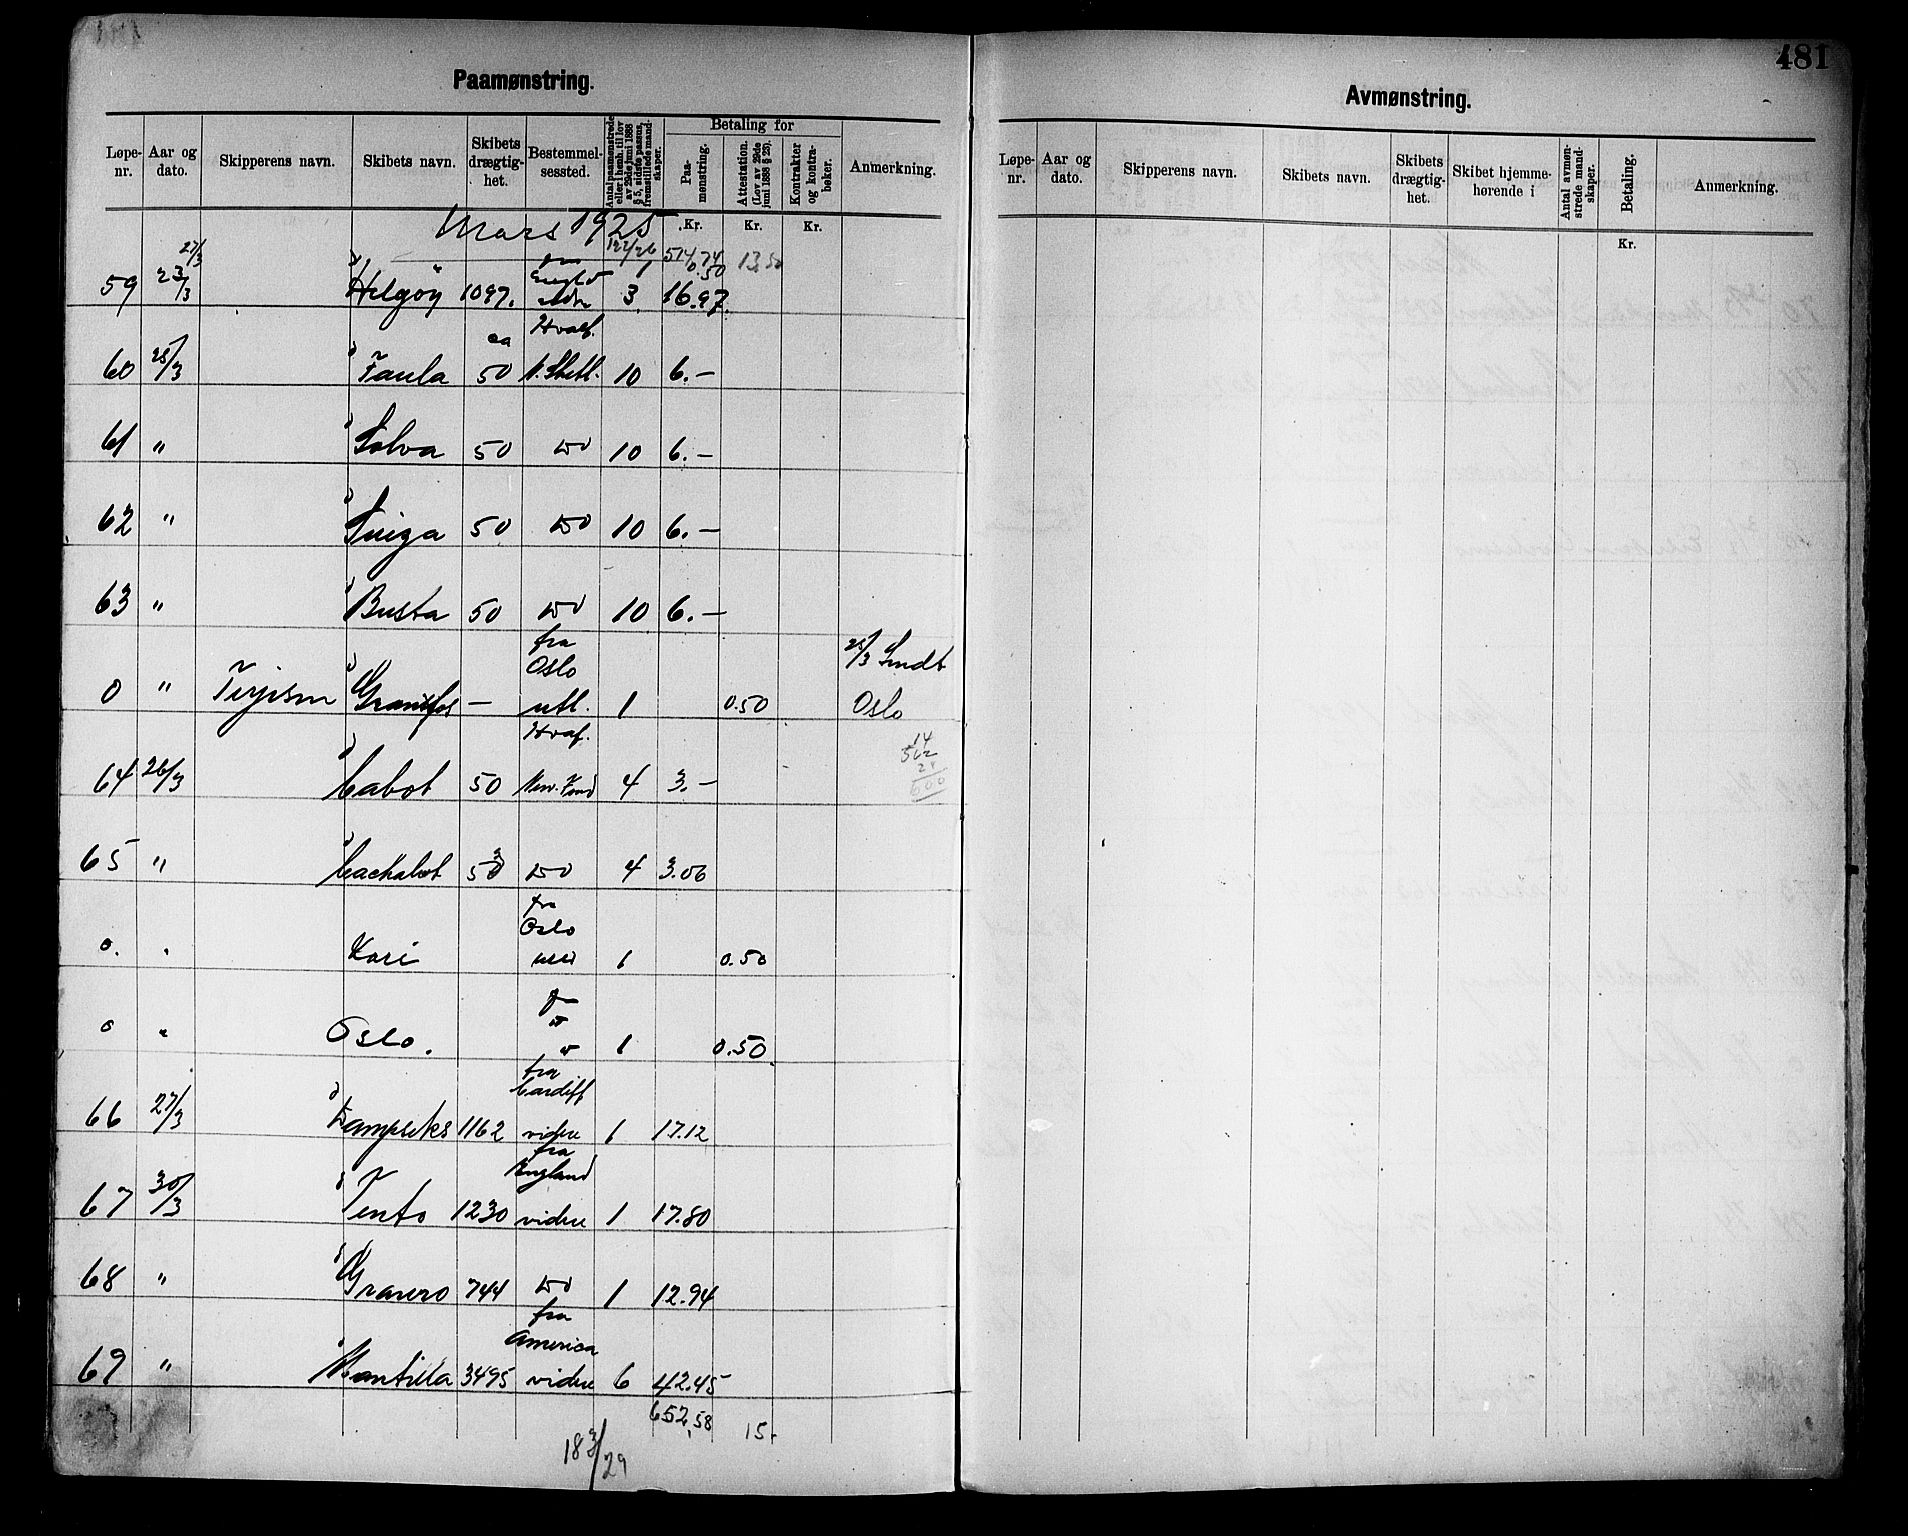 481
Paamønstring.
Løpe-nr. Aar og dato. Skipperens navn. Skibets navn. Skibets drægtig-het. Bestemmel-sessted. Antal paamønstrede eller i henh. til lov av 29de juni 1888 § 5, sidste passus, fremstillede mand-skaper. Betaling for Paa-mønstring. Attestation. (Lov av 29de juni 1888 § 23). Kontrakter og kontra-bøker. Anmerkning.
Kr. Kr. Kr.
Mars 1925
122/26 514.74 13.50
27/3 1 0.50
59 23/3 Helgøy 1097. 3 16.97
Hvalf.
60 25/3 Faula ca 50 N. Shetl. 10 6.-
61 " Solva 50 do 10 6.-
62 " 50 do 10 6.-
63 " Busta 50 do 10 6.-
fra
Oslo 25/3 Sendt
0 " Terjesen Granfos - utl. 1 0.50 Oslo
Hvalf. 14
64 26/3 Cabot 50 New. Fond 4 3.- 600
65 " Cachalot 50 do 4 3.00
fra
Oslo
0. " Kari 1 0.50
0 " Oslo. 1 0.50
fra
Cardiff
66 27/3 1162 videre 1 17.12
fra
England
67 30/3 Tento 1230 videre 1 17.80
68 " Granero 744 do 1 12.94
fra
America
69 " Mantilla 3495 videre 6 42.45
652.58 15.-
183/29
Avmønstring.
Løpe-nr. Aar og dato. Skipperens navn. Skibets navn. Skibets drægtig-het. Skibet hjemme-hørende i Antal avmøn-strede mand-skaper. Betaling. Anmerkning.
Kr.